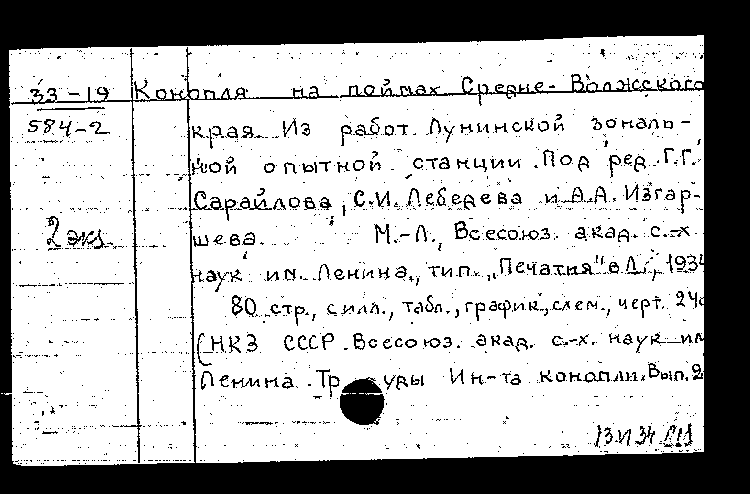 33-19 Конопля на поймах Средне-Волжского
584-2 края. Из работ Лунинской зональ-
ной опытной станции. Под ред. Г.Г.
Сарайлова, С.И. Лебедева и А.А. Изгар-
2 экз. шева. М.-Л., Всесоюз. акад. с.-х
наук им. Ленина, тип. "Печатня" в Л., 1934
80 стр., с илл., табл., график., схем., черт. 24
(НКЗ СССР. Всесоюз. акад. с.-х. наук им
Ленина. Труды Ин-та конопли. Вып. 2